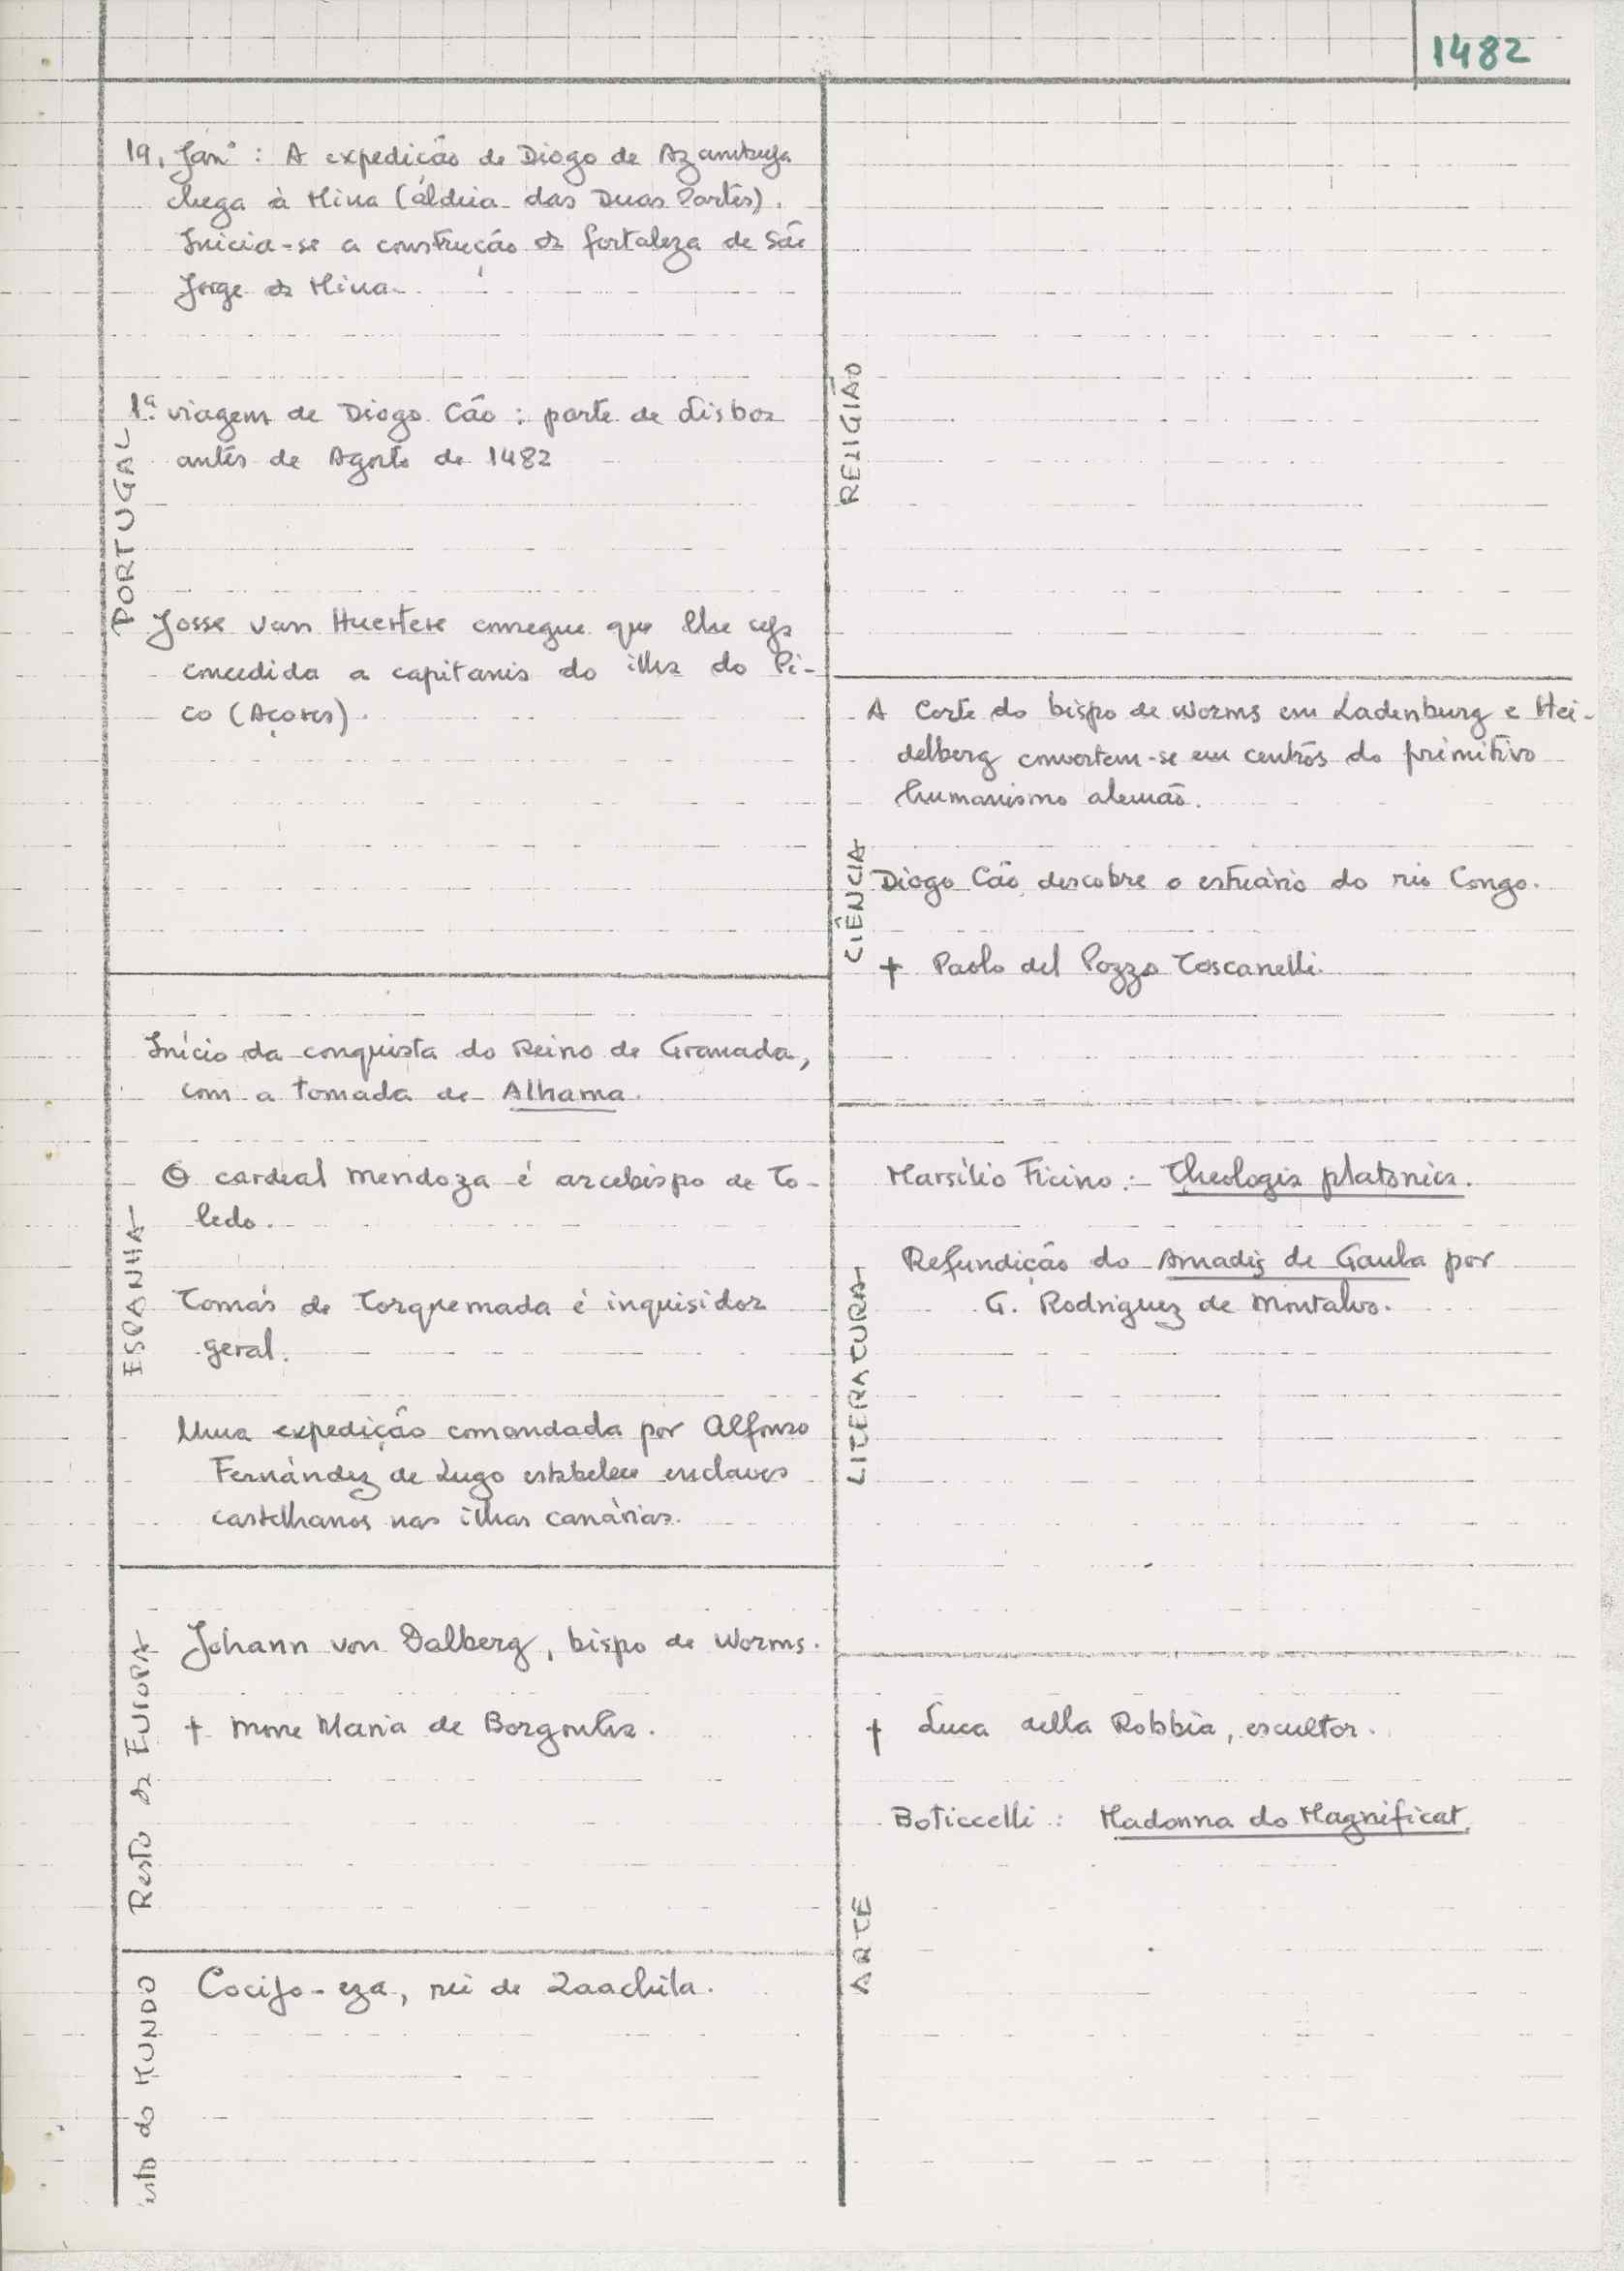 1482
PORTUGAL
19, Janº: A expedição de Diogo de Azambuja
chega à Mina (áldeia das Duas Partes).
Inicia-se a construção da fortaleza de São
Jorge da Mina.
1ª viagem de Diogo Cão: parte de Lisboa
antes de Agosto de 1482
Josse van Huertere consegue que lhe seja
concedida a capitania do ilha do Pi-
co (Açores).
ESPANHA
Início da conquista do Reino de Granada,
com a tomada de Alhama.
O cardeal Mendoza é arcebispo de To-
ledo.
Tomás de Torquemada é inquisidor
geral.
Uma expedição comandada por Alfonso
Fernández de Lugo estabelece enclaves
castelhanos nas ilhas canárias.
Resto da EUROPA
Johann von Dalberg, bispo de Worms.
† morre Maria de Borgonha.
esto do MUNDO
Cocijo-eza, rei de Zaachila.
RELIGIÃO
CIÊNCIA
A Corte do bispo de Worms em Ladenburg e Hei-
delberg convertem-se em centros do primitivo
humanismo alemão.
Diogo Cão descobre o estuário do rio Congo.
† Paolo del Pozzo Toscanelli.
LITERATURA
Marsílio Ficino: Theologia platonica.
Refundição do Amadis de Gaula por
G. Rodriguez de Montalvo.
ARTE
† Luca della Robbia, escultor.
Boticcelli: Madonna do Magnificat.